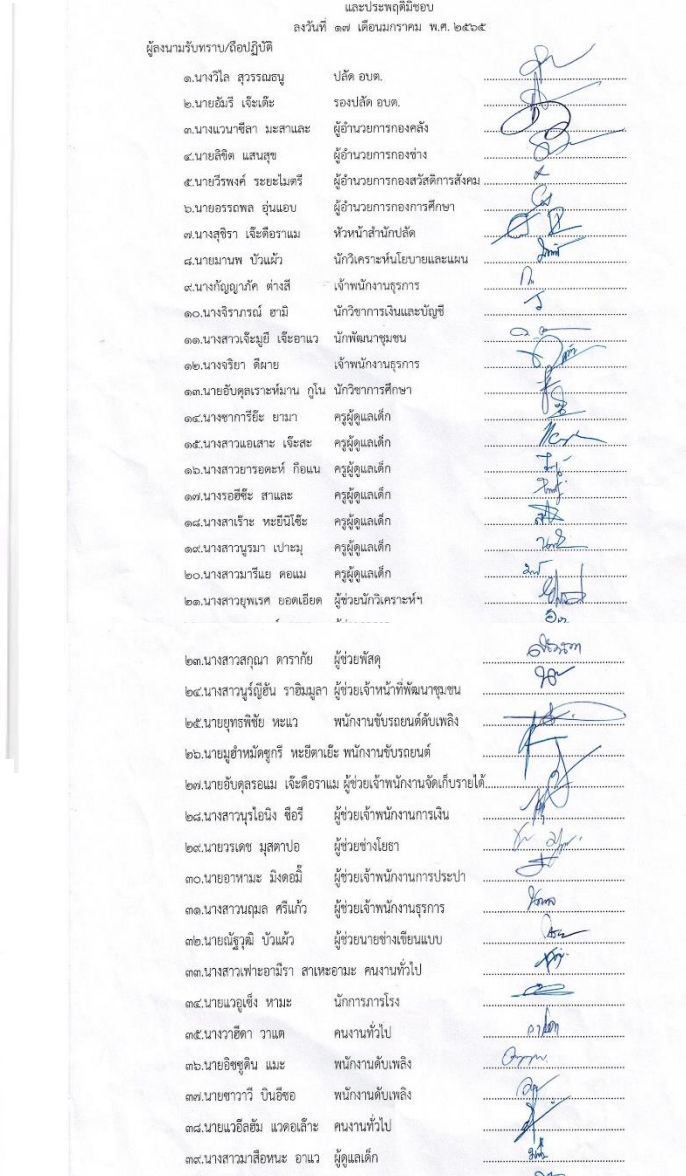 และประพฤติมิชอบ
ลงวันที่ ๑๗ เดือนมกราคม พ.ศ. ๒๕๖๕
ผู้ลงนามรับทราบ/ถือปฏิบัติ
๑.นางวิไล สุวรรณธนู ปลัด อบต.
๒.นายอัมรี เจ๊ะเต๊ะ รองปลัด อบต.
๓.นางแวนาซีลา มะสาและ ผู้อำนวยการกองคลัง
๔.นายลิขิต แสนสุข ผู้อำนวยการกองช่าง
๕.นายวีรพงค์ ระยะไมตรี ผู้อำนวยการกองสวัสดิการสังคม
๖.นายอรรถพล อุ่นแอบ ผู้อำนวยการกองการศึกษา
๗.นางสุชิรา เจ๊ะดือราแม หัวหน้าสำนักปลัด
๘.นายมานพ บัวแผ้ว นักวิเคราะห์นโยบายและแผน
๙.นางกัญญาภัค ต่างสี เจ้าพนักงานธุรการ
๑๐.นางจิราภรณ์ ฮามิ นักวิชาการเงินและบัญชี
๑๑.นางสาวเจ๊ะมูยี เจ๊ะอาแว นักพัฒนาชุมชน
๑๒.นางจริยา ดีผาย เจ้าพนักงานธุรการ
๑๓.นายอับดุลเราะห์มาน กูโน นักวิชาการศึกษา
๑๔.นางซาการีย๊ะ ยามา ครูผู้ดูแลเด็ก
๑๕.นางสาวแอเสาะ เจ๊ะสะ ครูผู้ดูแลเด็ก
๑๖.นางสาวยารอตะห์ ก๊อแน ครูผู้ดูแลเด็ก
๑๗.นางรอฮีซ๊ะ สาและ ครูผู้ดูแลเด็ก
๑๘.นางสาเร๊าะ หะยีนิโซ๊ะ ครูผู้ดูแลเด็ก
๑๙.นางสาวนูรมา เปาะมุ ครูผู้ดูแลเด็ก
๒๐.นางสาวมารีแย ตอแม ครูผู้ดูแลเด็ก
๒๑.นางสาวยุพเรศ ยอดเอียด ผู้ช่วยนักวิเคราะห์ฯ
๒๓.นางสาวสกุณา ดารากัย ผู้ช่วยพัสดุ
๒๔.นางสาวนูร์ญีฮัน ราฮิมมูลา ผู้ช่วยเจ้าหน้าที่พัฒนาชุมชน
๒๕.นายยุทธพิชัย หะแว พนักงานขับรถยนต์ดับเพลิง
๒๖.นายมูฮำหมัดซูกรี หะยีตาเย๊ะ พนักงานขับรถยนต์
๒๗.นายอับดุลรอแม เจ๊ะดือราแม ผู้ช่วยเจ้าพนักงานจัดเก็บรายได้
๒๘.นางสาวนุรไอนิง ซือรี ผู้ช่วยเจ้าพนักงานการเงิน
๒๙.นายวรเดช มุสตาปอ ผู้ช่วยช่างโยธา
๓๐.นายอาหามะ มิงดอมิ๊ ผู้ช่วยเจ้าพนักงานการประปา
๓๑.นางสาวนฤมล ศรีแก้ว ผู้ช่วยเจ้าพนักงานธุรการ
๓๒.นายณัฐวุฒิ บัวแผ้ว ผู้ช่วยนายช่างเขียนแบบ
๓๓.นางสาวเฟาะอามีรา สาเหะอามะ คนงานทั่วไป
๓๔.นายแวอูเซ็ง หามะ นักการภารโรง
๓๕.นางวาฮีดา วาแต คนงานทั่วไป
๓๖.นายอิซซูดิน แมะ พนักงานดับเพลิง
๓๗.นายซาวาวี บินอีซอ พนักงานดับเพลิง
๓๘.นายแวอีลฮัม แวดอเล๊าะ คนงานทั่วไป
๓๙.นางสาวมาสือหนะ อาแว ผู้ดูแลเด็ก